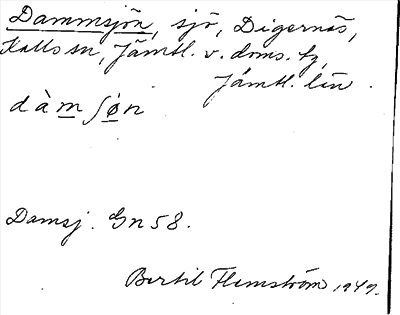 Dammsjön, sjö, Digernäs,
Kalls sn, Jämtl. v. doms. tg,
Jämtl. län.
dàm̲ʃø̲n
Damsj. Gn 58.
Bertil Flemström 1949.